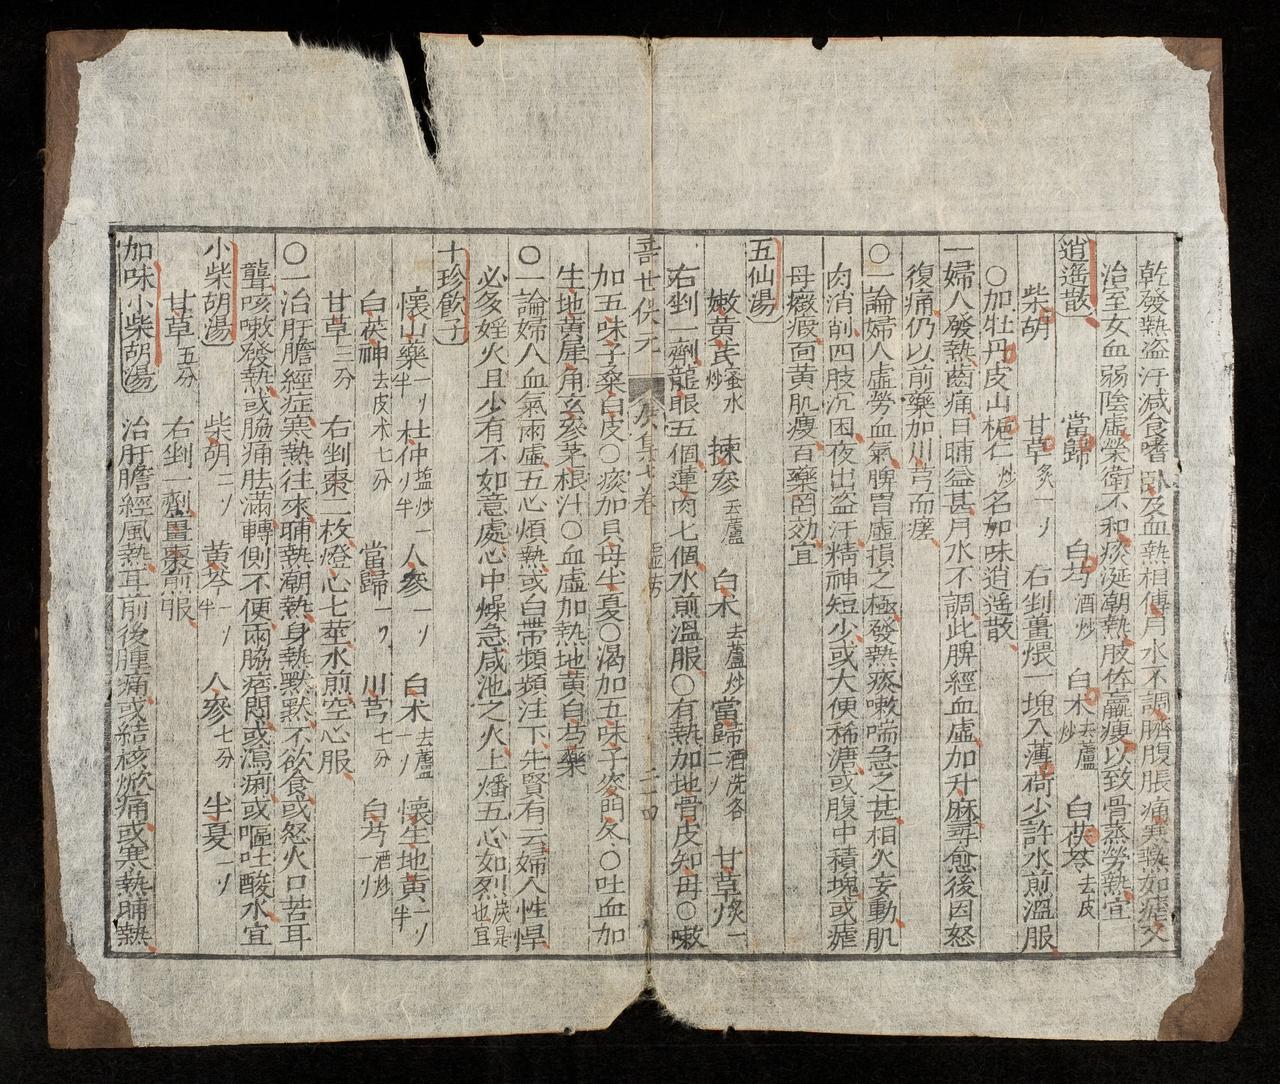 乾發熱盜汗減食嗜臥及血熱相傳月水不調臍腹脹痛寒熱如瘧又
治至女血弱陰虛榮衛不和痰涎潮熱肢体羸瘦以致骨蒸勞熱宜
逍遙散 當歸 白芍酒炒 白朮去蘆炒 白茯苓去皮
柴胡 甘草炙一刂 右剉薑煨一塊入薄荷少許水煎溫服
○加牡丹皮山梔仁炒名加味逍遙散
一婦人發熱齒痛日晡益甚月水不調此脾經血虛加升麻尋愈後因怒
復痛仍以前藥加川芎而痊
○一論婦人虛勞血氣脾胃虛損之極發熱痰嗽喘急之甚相火妄動肌
肉消削四肢沉困夜出盜汗精神短少或大便稀溏或腹中積塊或瘧
母癥瘕面黃肌瘦百藥罔効宜
五仙湯
嫩黃芪蜜水炒 揀參去蘆 白朮去蘆炒 當歸酒洗各二刂 甘草炙一
右剉一劑龍眼五個蓮肉七個水煎溫服○有熱加地骨皮知母○嗽
壽世保元 庚集七卷 二四
加五味子桑白皮○痰加貝母半夏○渴加五味子麥門冬○吐血加
生地黃犀角玄參茅根汁○血虛加熱地黃白芍藥
○一論婦人血氣兩虛五心煩熱或白帶頻頻注下先賢有云婦人性悍
必多婬火且少有不如意處心中燥急咸池之火上燔五心如烈炭是也宜
十珍飲子
懷山藥一刂半 杜仲塩炒一刂半 人參一刂 白朮去蘆一刂 懷生地黃二刂半
白茯神去皮木七分 當歸一刂 川芎七分 白芍酒炒一刂
甘草三分 右剉棗二枚燈心七莖水煎空心服
○一治肝膽經症寒熱往來晡熱潮熱身熱默默不欲食或怒火口苦耳
聾咳嗽發熱或脇痛胠滿轉側不便兩脇痞悶或瀉痢或嘔吐酸水宜
小柴胡湯 柴胡二刂 黃芩一刂半 人參七分 半夏一刂
甘草五分 右剉一劑薑棗煎服
加味小柴胡湯 治肝膽經風熱耳前後腫痛或結核焮痛或寒熱晡熱